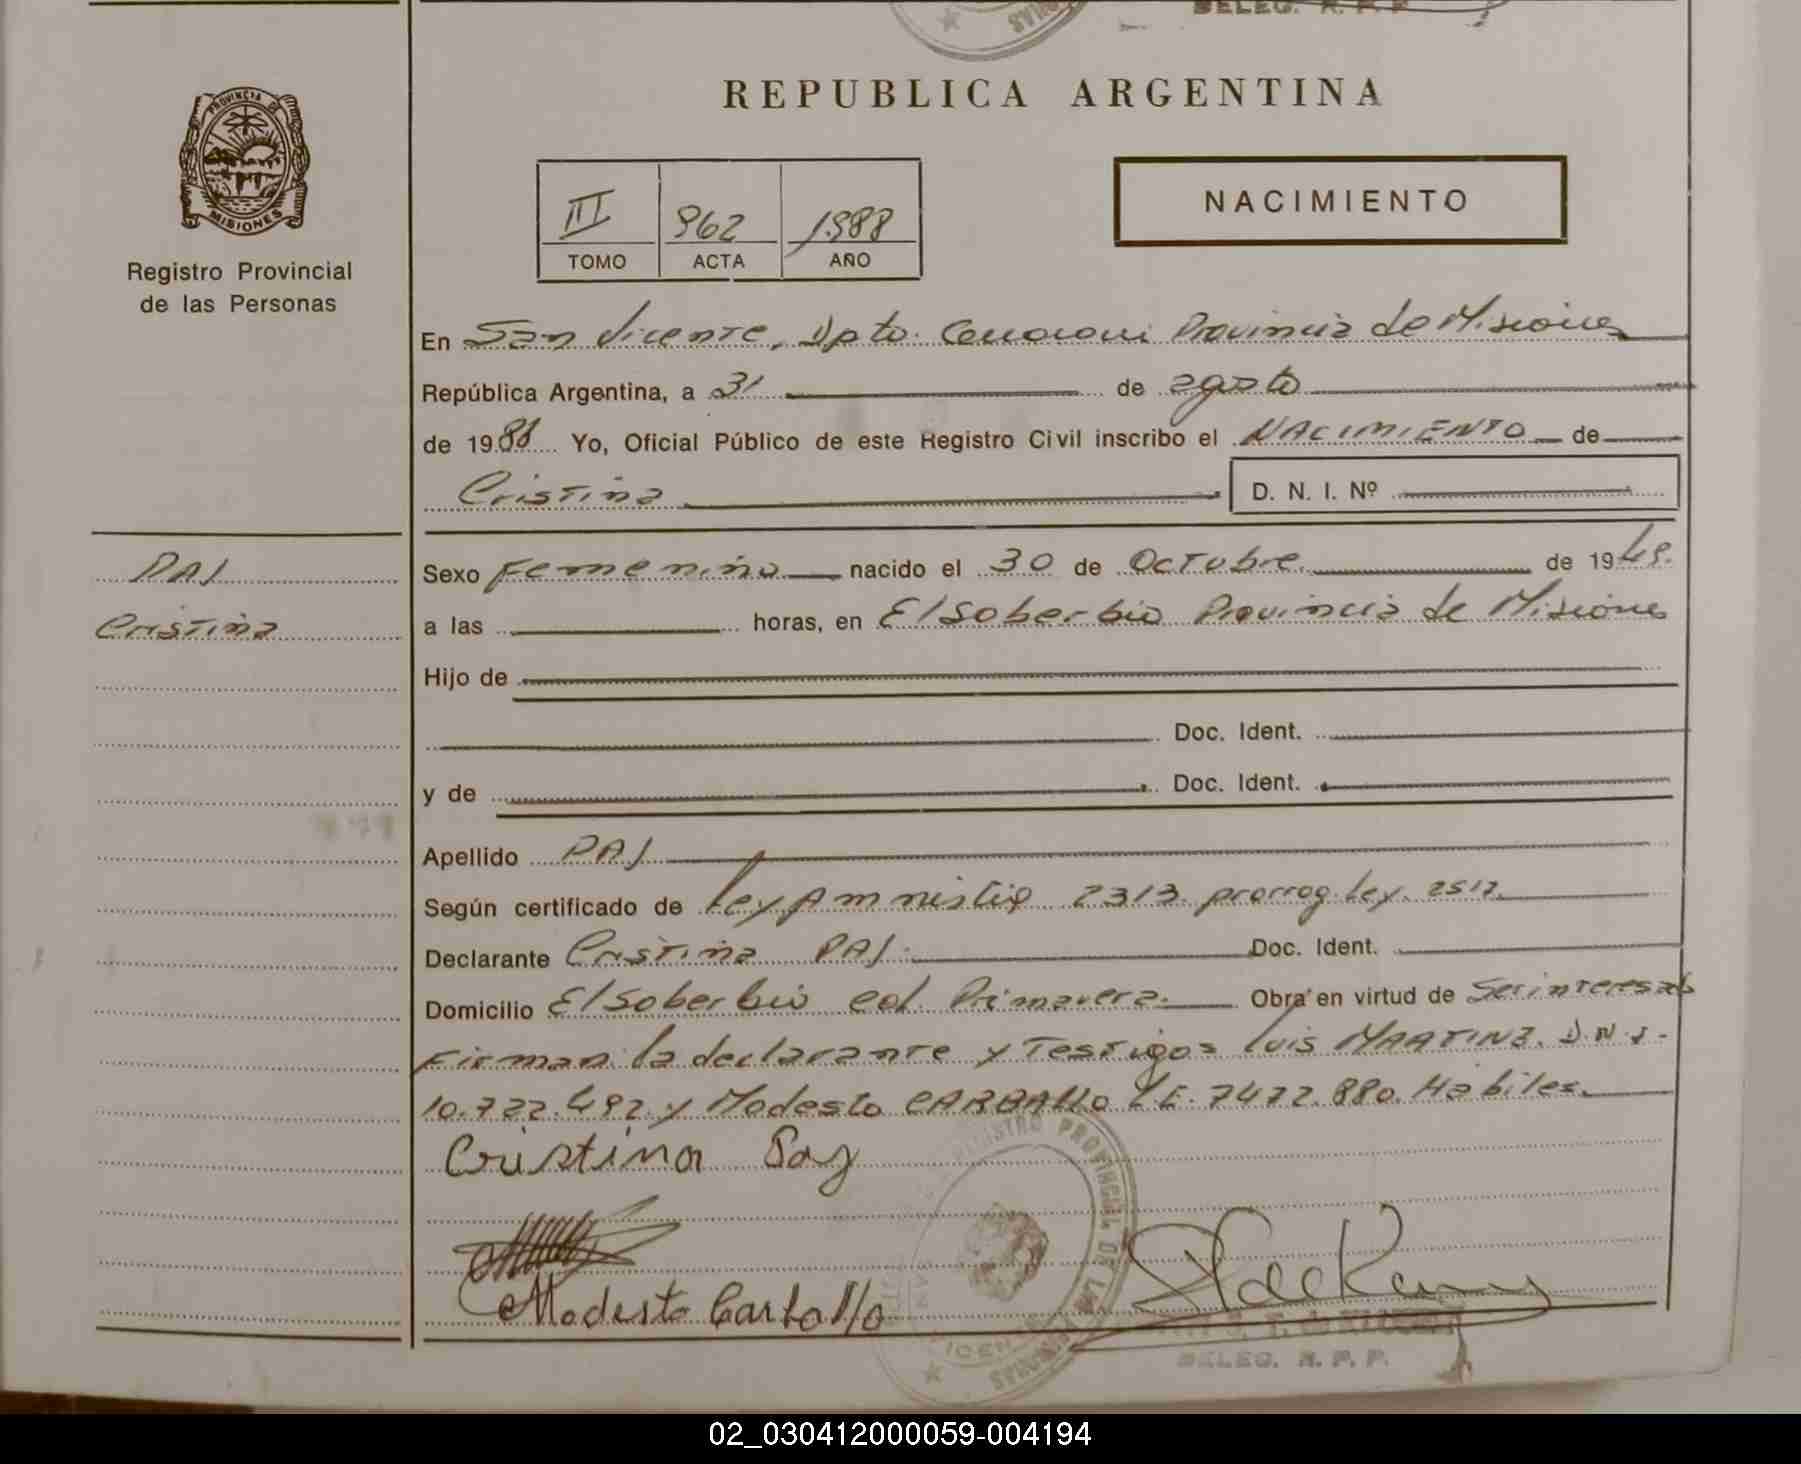 DELEG. R. P. P.
REPUBLICA ARGENTINA
PROVINCIA DE
MISIONES
Registro Provincial
de las Personas
III 962 1988
TOMO ACTA AÑO
NACIMIENTO
En San Vicente, Dpto. Provincia de Misiones
República Argentina, a 31 de agosto
de 1988 Yo, Oficial Público de este Registro Civil inscribo el NACIMIENTO de
Cristina D. N. I. Nº
PAJ
Cristina
Sexo Femenino nacido el 30 de Octubre de 1949.
a las horas, en El Soberbio Provincia de Misiones
Hijo de
Doc. Ident.
y de Doc. Ident.
Apellido PAJ
Según certificado de Ley Amnistia 2313 prorrog. Ley. 2512
Declarante Cristina PAJ. Doc. Ident.
Domicilio El Soberbio col. Primavera. Obra en virtud de Ser interesado
Firman la declarante y Testigos Luis MARTINEZ. D.N.I.
10.722.492 y Modesto CARBALLO L.E. 7472.880. Habiles.
Cristina Paj
Modesto Carballo
REGISTRO PROVINCIAL DE LAS PERSONAS
DELEG. R. P. P.
02_030412000059-004194